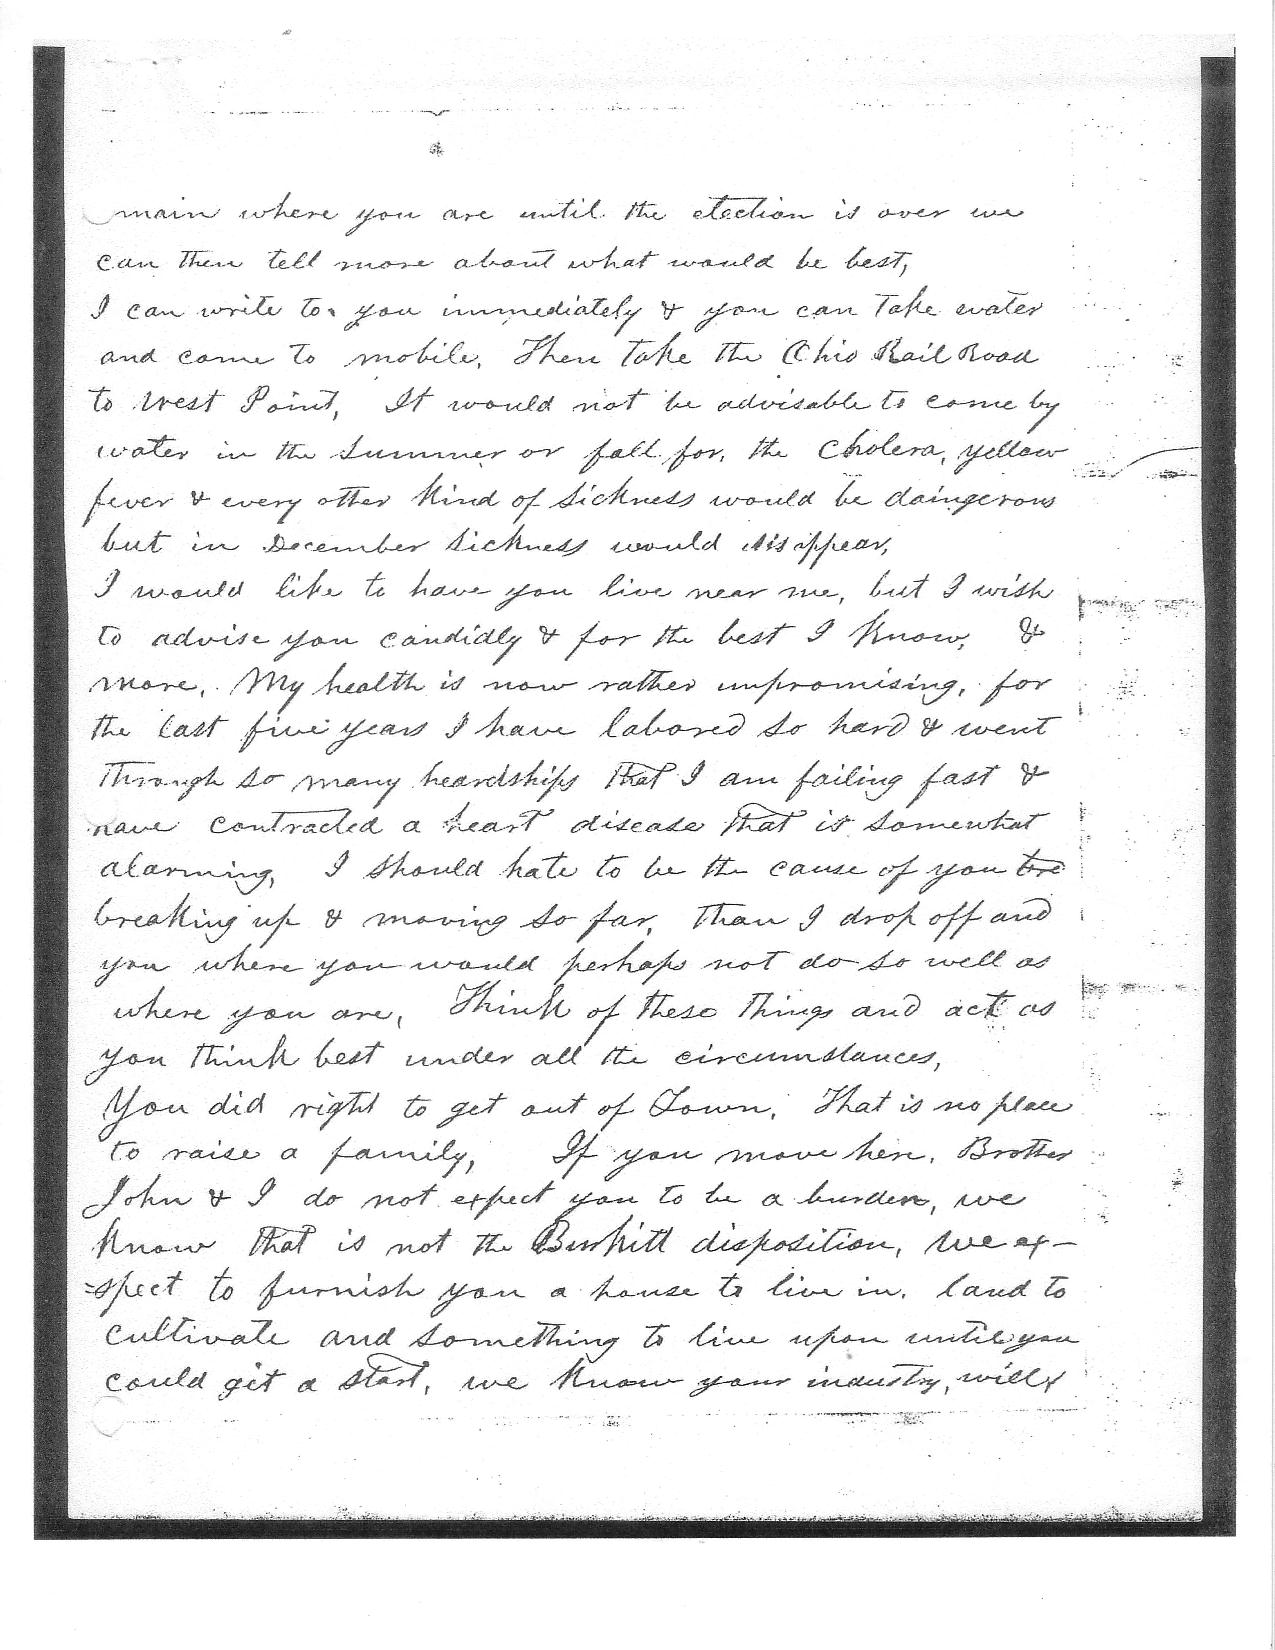 main where you are until the election is over we
can then tell more about what would be best,
I can write to you immediately & you can take water
and come to mobile. Then take the Ohio Rail Road
to West Point, It would not be advisable to come by
water in the summer or fall for, the Cholera, yellow
fever & every other kind of sickness would be daingerous
but in December sickness would disappear,
I would like to have you live near me, but I wish
to advise you candidly & for the best I know, &
more, My health is now rather unpromising, for
the last five years I have labored so hard & went
through so many heardships that I am failing fast &
have contracted a heart disease that is somewhat
alarming, I should hate to be the cause of you bre
breaking up & moving so far, than I drop off and
you where you would perhaps not do so well as
where you are, Think of these things and act as
you think best under all the circumstances,
You did right to get out of Town, That is no place
to raise a family, If you move here, Brother
John & I do not expect you to be a burden, we
know that is not the Burkitt disposition, we ex-
=spect to furnish you a house to live in, land to
cultivate and something to live upon until you
could get a start, we know your industry, will &